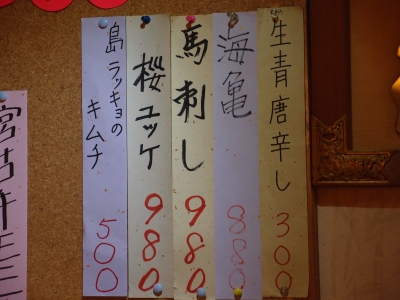 生青唐辛し 300
海亀 880
馬刺し 980
桜ユッケ 980
島ラッキョの
キムチ 500
宮古